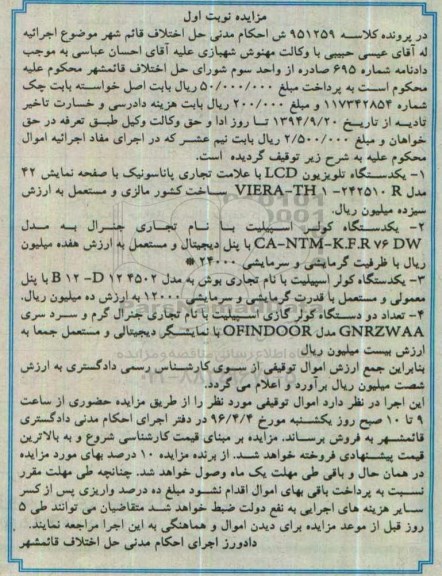 مزایده نوبت اول
در پرونده کلاسه ۹۵۱۲۵۹ ش احکام مدنی حل اختلاف قائم شهر موضوع اجرائیه
له آقای عیسی حبیبی با وکالت مهنوش شهبازی علیه آقای احسان عباسی به موجب
دادنامه شماره ۶۹۵ صادره از واحد سوم شورای حل اختلاف قائمشهر محکوم علیه
محکوم است به پرداخت مبلغ ۵۰/۰۰۰/۰۰۰ ریال بابت اصل خواسته بابت چک
شماره ۱۱۷۳۴۲۸۵۴ و مبلغ ۲۰۰/۰۰۰ ریال بابت هزینه دادرسی و خسارت تاخیر
تادیه از تاریخ ۱۳۹۴/۹/۲۰ تا روز ادا و حق وکالت وکیل طبق تعرفه در حق
خواهان و مبلغ ۲/۵۰۰/۰۰۰ ریال بابت نیم عشر که در اجرای مفاد اجرائیه اموال
محکوم علیه به شرح زیر توقیف گردیده است.
۱- یکدستگاه تلویزیون LCD با علامت تجاری پاناسونیک با صفحه نمایش ۴۲
مدل VIERA-TH ۱ -۲۴۲۵۱۰ R ساخت کشور مالزی و مستعمل به ارزش
سیزده میلیون ریال.
۲- یکدستگاه کولر اسپیلیت با نام تجاری جنرال به مدل
CA-NTM-K.F.R ۷۶ DW با پنل دیجیتال و مستعمل به ارزش هفده میلیون
ریال با ظرفیت گرمایشی و سرمایشی ۲۴۰۰۰ *
۳- یکدستگاه کولر اسپیلیت با نام تجاری بوش به مدل B ۱۲ -D ۱۲ ۴۵۰۲ با پنل
معمولی و مستعمل با قدرت گرمایشی و سرمایشی ۱۲۰۰۰ به ارزش ده میلیون ریال.
۴- تعداد دو دستگاه کولر گازی اسپیلیت با نام تجاری جنرال گرم و سرد سری
GNRZWAA مدل OFINDOOR با نمایشگر دیجیتالی و مستعمل جمعا به
ارزش بیست میلیون ریال
بنابراین جمع ارزش اموال توقیفی از سوی کارشناس رسمی دادگستری به ارزش
شصت میلیون ریال برآورد و اعلام می گردد.
این اجرا در نظر دارد اموال توقیفی مورد نظر را از طریق مزایده حضوری از ساعت
۹ تا ۱۰ صبح روز یکشنبه مورخ ۹۶/۴/۴ در دفتر اجرای احکام مدنی دادگستری
قائمشهر به فروش برساند. مزایده بر مبنای قیمت کارشناسی شروع و به بالاترین
قیمت پیشنهادی فروخته خواهد شد. از برنده مزایده ۱۰ درصد بهای مورد مزایده
در همان حال و باقی طی مهلت یک ماه وصول خواهد شد. چنانچه طی مهلت مقرر
نسبت به پرداخت باقی بهای اموال اقدام نشود مبلغ ده درصد واریزی پس از کسر
سایر هزینه های اجرایی به نفع دولت ضبط خواهد شد متقاضیان می توانند طی ۵
روز قبل از موعد مزایده برای دیدن اموال و هماهنگی به این اجرا مراجعه نمایند.
دادورز اجرای احکام مدنی حل اختلاف قائمشهر